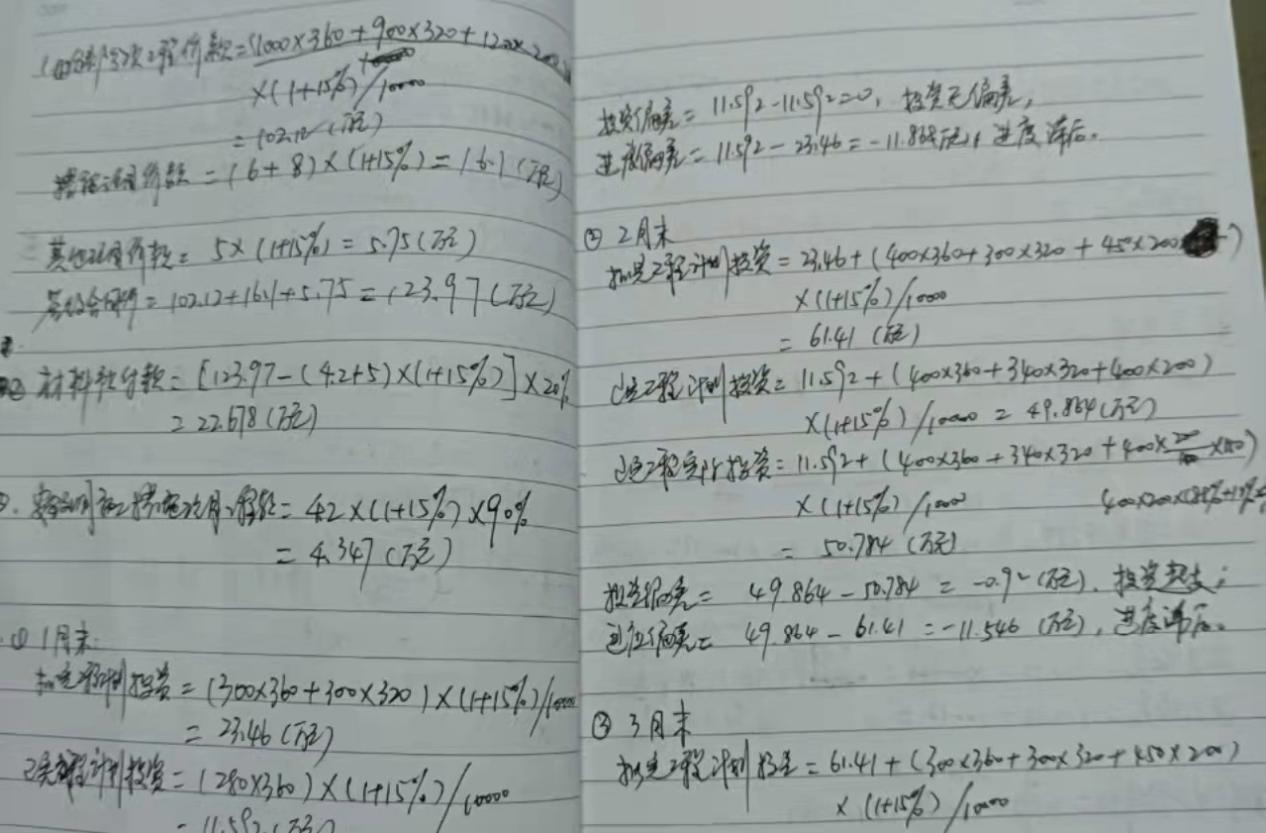 工程价款=(1000×360+900×320+1200×200)
×(1+15%)/10000
=102.12(万元)
措施项目价款=(6+8)×(1+15%)=16.1(万元)
其他项目价款=5×(1+15%)=5.75(万元)
签约合同价=102.12+16.1+5.75=123.97(万元)
② 材料预付款=[123.97-(4.2+5)×(1+15%)]×20%
=22.678(万元)
工程款=4.2×(1+15%)×90%
=4.347(万元)
① 1月末:
拟完工程计划投资=(300×360+300×320)×(1+15%)/10000
=23.46(万元)
已完工程计划投资=(280×360)×(1+15%)/10000
=11.592(万元)
投资偏差=11.592-11.592=0,投资无偏差,
进度偏差=11.592-23.46=-11.868万元,进度滞后。
② 2月末
拟完工程计划投资=23.46+(400×360+300×320+450×200)
×(1+15%)/10000
=61.41(万元)
已完工程计划投资=11.592+(400×360+340×320+400×200)
×(1+15%)/10000=49.864(万元)
已完工程实际投资=11.592+(400×360+340×320+400×
×(1+15%)/10000
=50.784(万元)
投资偏差=49.864-50.784=-0.92(万元),投资超支;
进度偏差=49.864-61.41=-11.546(万元),进度滞后。
③ 3月末
拟完工程计划投资=61.41+(300×360+300×320+450×200)
×(1+15%)/10000